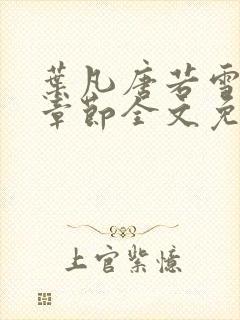 葉凡唐若雪
章節全文免
上官紫憶